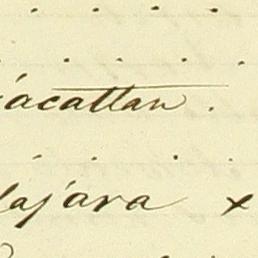 acattan .
lajara x